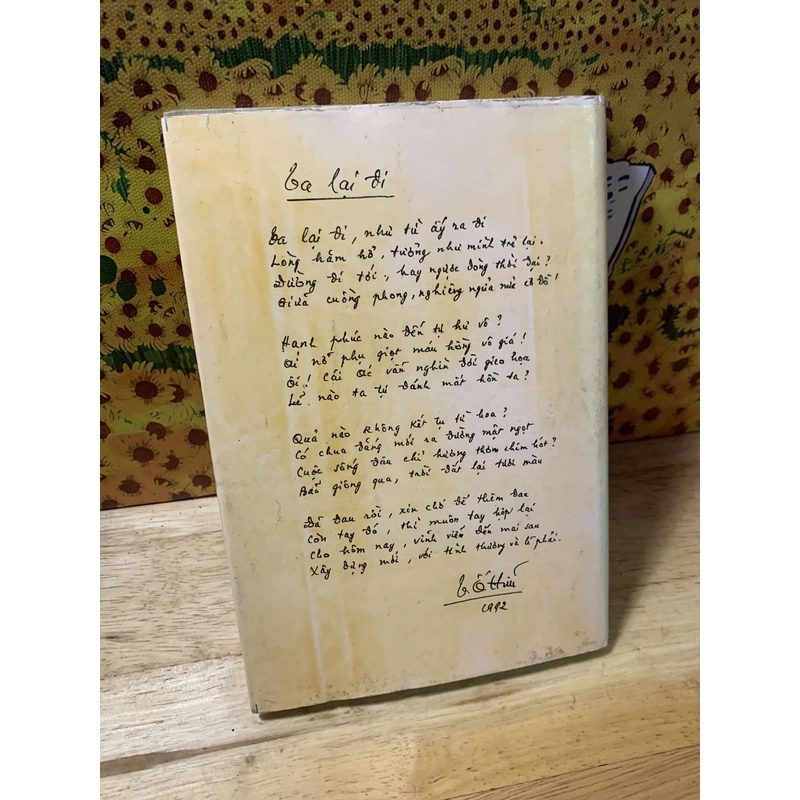 Ta lại đi
Ta lại đi, như từ ấy ra đi
Lòng hăm hở, tưởng như mình trẻ lại.
Đường đi tới, hay ngược dòng thời đại?
Giữa cuồng phong, nghiêng ngửa mũ cờ đỏ!
Hạnh phúc nào đến tự hư vô?
Ai nỡ phụ giọt máu hồng vô giá!
Ôi! Cái ác vẫn nghìn đời gieo họa
Lẽ nào ta tự đánh mất hồn ta?
Quả nào không kết tụ từ hoa?
Có chua đắng mới ra đường mật ngọt
Cuộc sống đâu chỉ hương thơm chim hót?
Bão giông qua, trời đất lại tươi màu
Đã đau rồi, xin chớ để thêm đau
Còn tay đó, thì muôn tay hợp lại
Cho hôm nay, vĩnh viễn đến mai sau
Xây dựng mới, với tình thương và lẽ phải.
Tố Hữu
1992